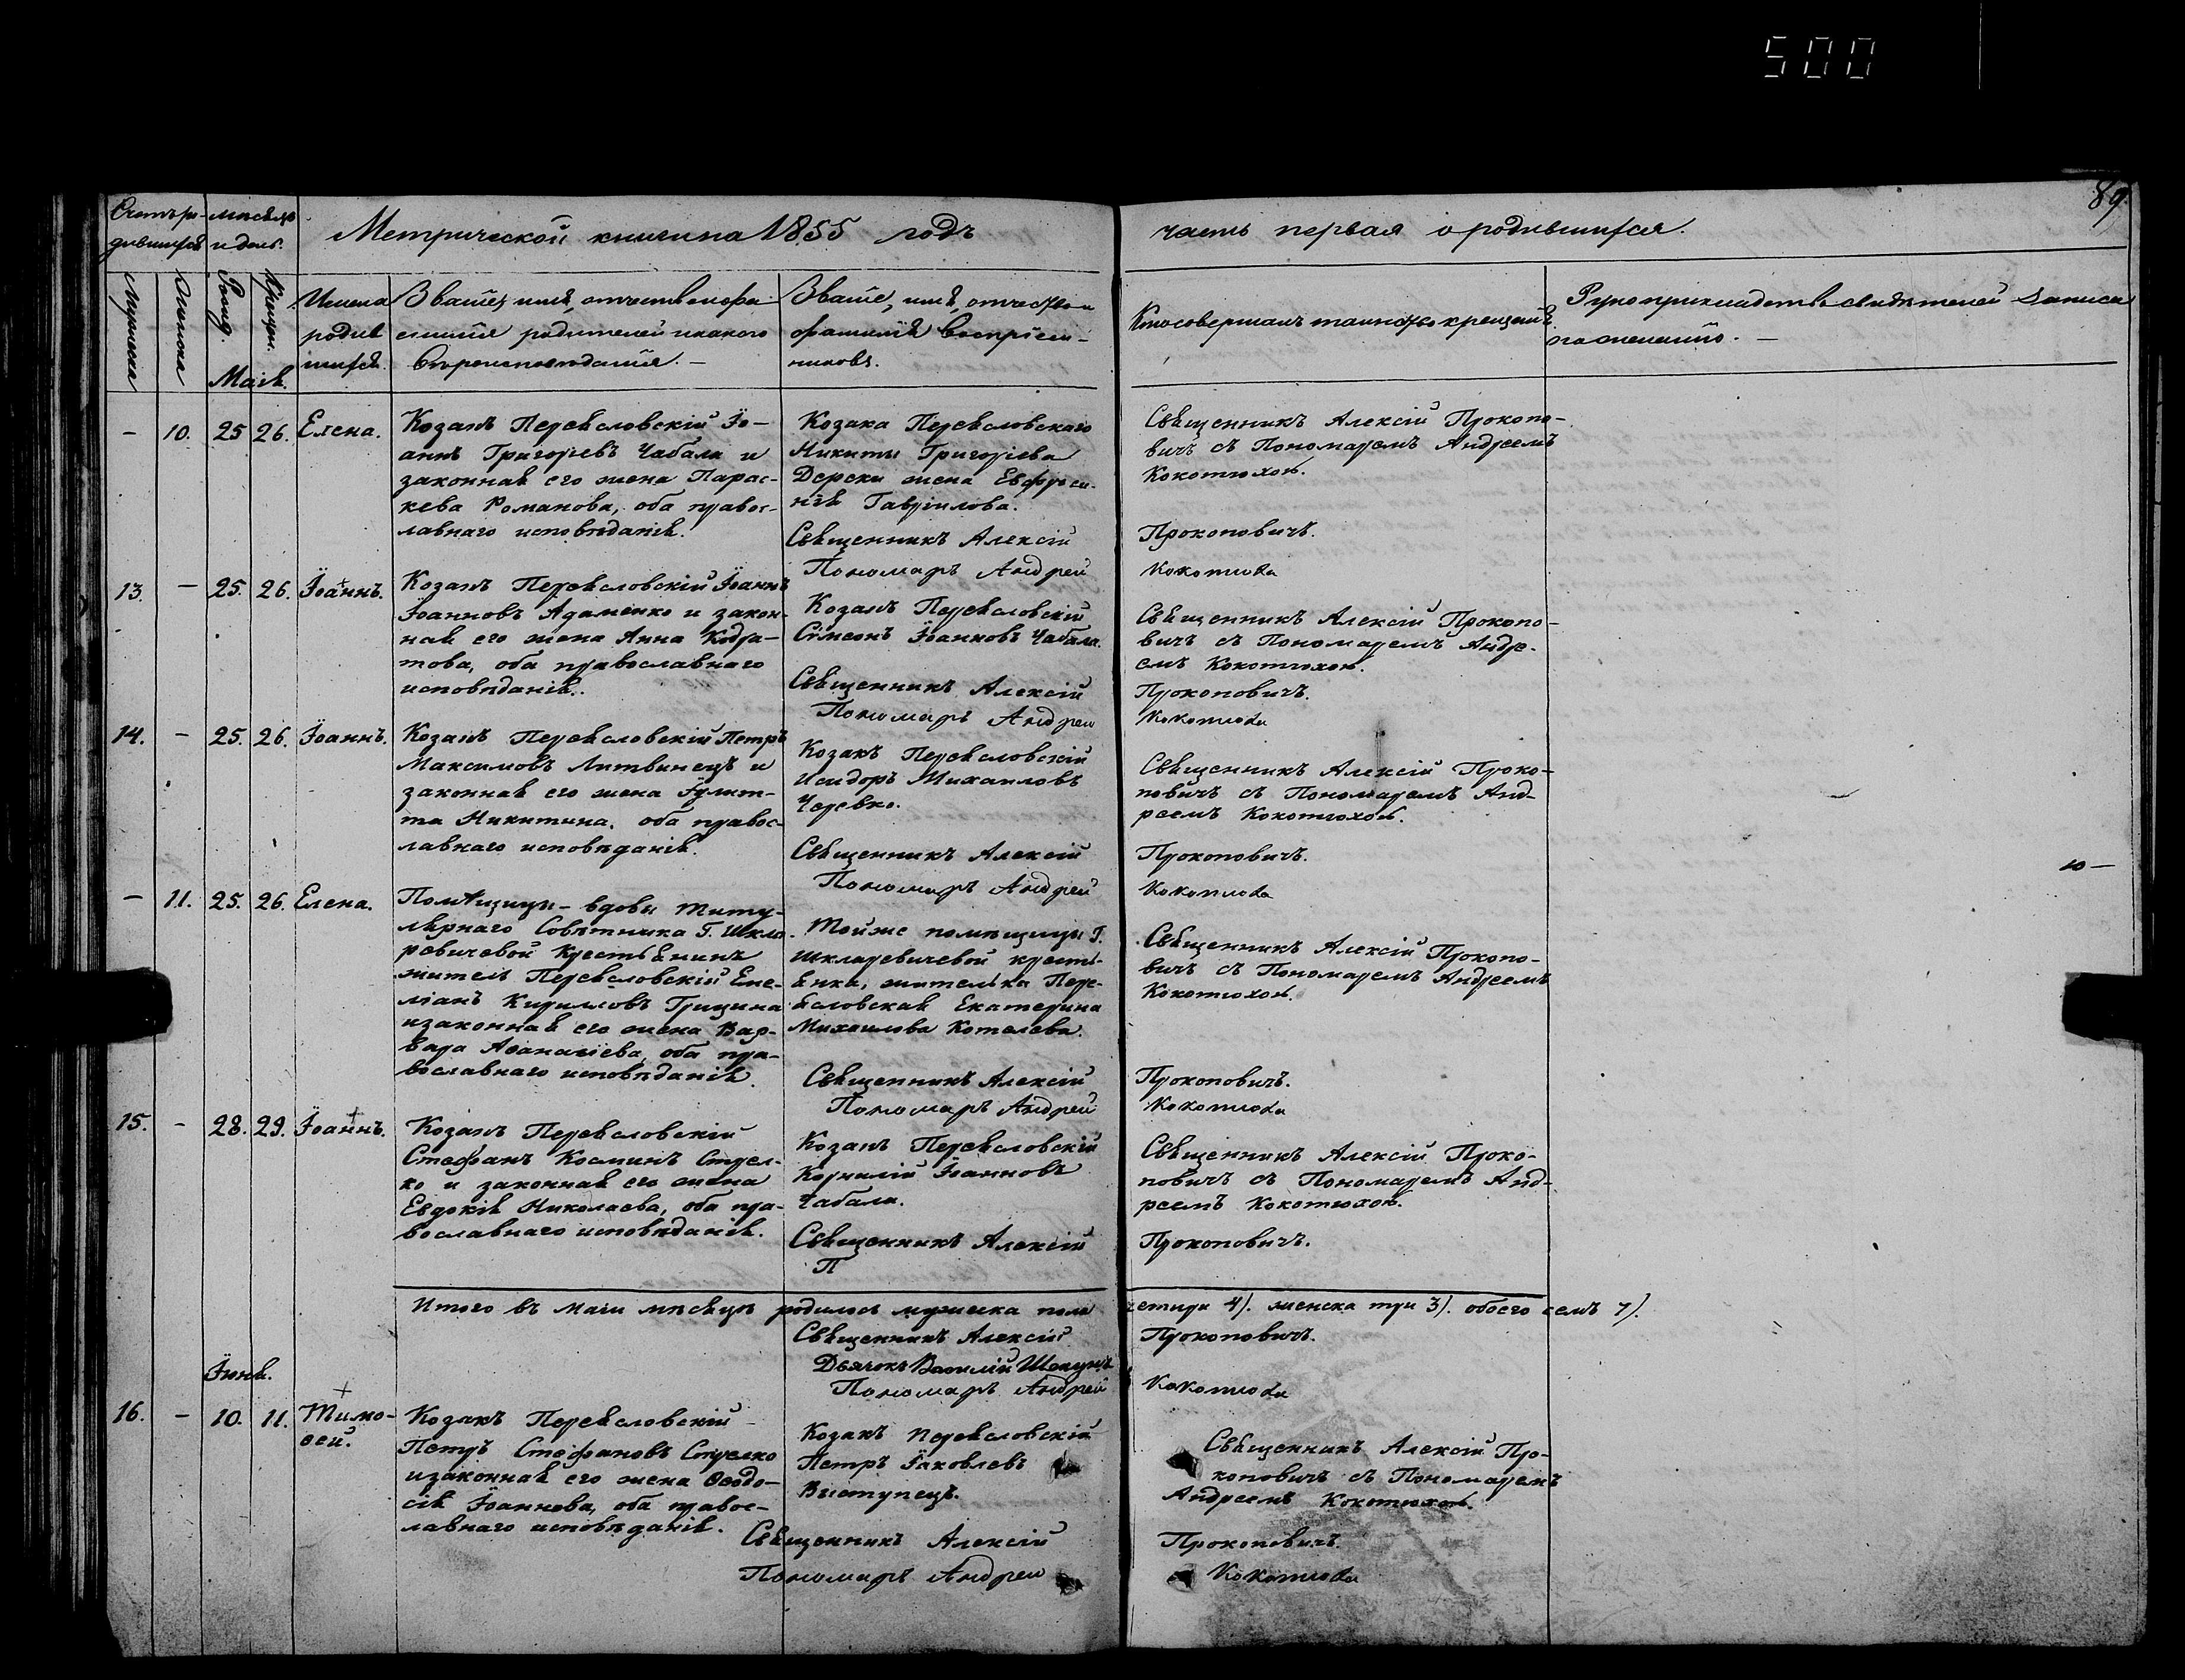 500
89
Счетъ ро- мѣсяцъ
дившихся и день.
Метрической книги на 1855 годъ
часть первая о родившихся.
Мужеска
Женска
Рожд.
Крещен.
Маія.
Имена
родив
шихся.
Званіе, имя, отчество и фа-
милія родителей и какого
вѣроисповѣданія. —
Званіе, имя, отчество и
фамилія воспріем-
никовъ.
Кто совершалъ таинство крещенія.
Рукоприкладство свидѣтелей записи
по желанію. —
— 10. 25 26. Елена.
Козакъ Переяловскій Іо-
аннъ Григорьевъ Чабала и
законная его жена Парас-
кева Романова, оба правос-
лавнаго исповѣданія.
Козака Переяловскаго
Никиты Григоріева
Дереки жена Евфроси-
нія Гавріилова.
Священникъ Алексій
Пономарь Андрей
Священникъ Алексій Прокопо-
вичъ съ Пономаремъ Андреемъ
Кокотюхою.
Прокоповичъ.
Кокотюха
13. — 25. 26. Іоаннъ.
Козакъ Переяловскій Іоаннъ
Іоанновъ Адаменко и закон-
ная его жена Анна Кодра-
това, оба православнаго
исповѣданія.
Козакъ Переяловскій
Сѵмеонъ Іоанновъ Чабала.
Священникъ Алексій
Пономарь Андрей
Священникъ Алексій Прокопо-
вичъ съ Пономаремъ Андре-
емъ Кокотюхою.
Прокоповичъ.
Кокотюха
14. — 25. 26. Іоаннъ.
Козакъ Переяловскій Петръ
Максимовъ Литвинецъ и
законная его жена Іулит-
та Никитина, оба правос-
лавнаго исповѣданія.
Козакъ Переяловскій
Исидоръ Михаиловъ
Черевко.
Священникъ Алексій
Пономарь Андрей
Священникъ Алексій Проко-
повичъ съ Пономаремъ Анд-
реемъ Кокотюхою.
Прокоповичъ.
Кокотюха
10 —
— 11. 25. 26. Елена.
Помѣщицы - вдовы Титу-
лярнаго Совѣтника Г. Шкла-
ревичевой Крестьянинъ
житель Переяловскій Еме-
ліанъ Кирилловъ Грицина
и законная его жена Вар-
вара Аѳанасіева, оба пра-
вославнаго исповѣданія.
Тойже помѣщицы Г.
Шкларевичевой кресть-
янка, жителька Пере-
яловская Екатерина
Михаилова Котелева.
Священникъ Алексій
Пономарь Андрей
Священникъ Алексій Прокопо-
вичъ съ Пономаремъ Андреемъ
Кокотюхою.
Прокоповичъ.
Кокотюха
15. — 28. 29. Іоаннъ.
Козакъ Переяловскій
Стефанъ Косминъ Стрел-
ко и законная его жена
Евдокія Николаева, оба пра-
вославнаго исповѣданія.
Козакъ Переяловскій
Корнилій Іоанновъ
Чабала.
Священникъ Алексій
П
Священникъ Алексій Проко-
повичъ съ Пономаремъ Анд-
реемъ Кокотюхою.
Прокоповичъ.
Итого въ маіи мѣсяцѣ родилось мужеска пола четири 4). женска три 3). обоего семъ 7).
Священникъ Алексій Прокоповичъ.
Дьячокъ Василій
Пономарь Андрей Кокотюха
Іюня.
16. — 10. 11. Тимо-
ѳей.
Козакъ Переяловскій
Петръ Стефановъ Стрелко
и законная его жена Ѳеодо-
сія Іоаннова, оба правос-
лавнаго исповѣданія.
Козакъ Переяловскій
Петръ Іаковлевъ
Виступецъ.
Священникъ Алексій
Пономарь Андрей
Священникъ Алексій Про-
коповичъ съ Пономаремъ
Андреемъ Кокотюхою.
Прокоповичъ.
Кокотюха